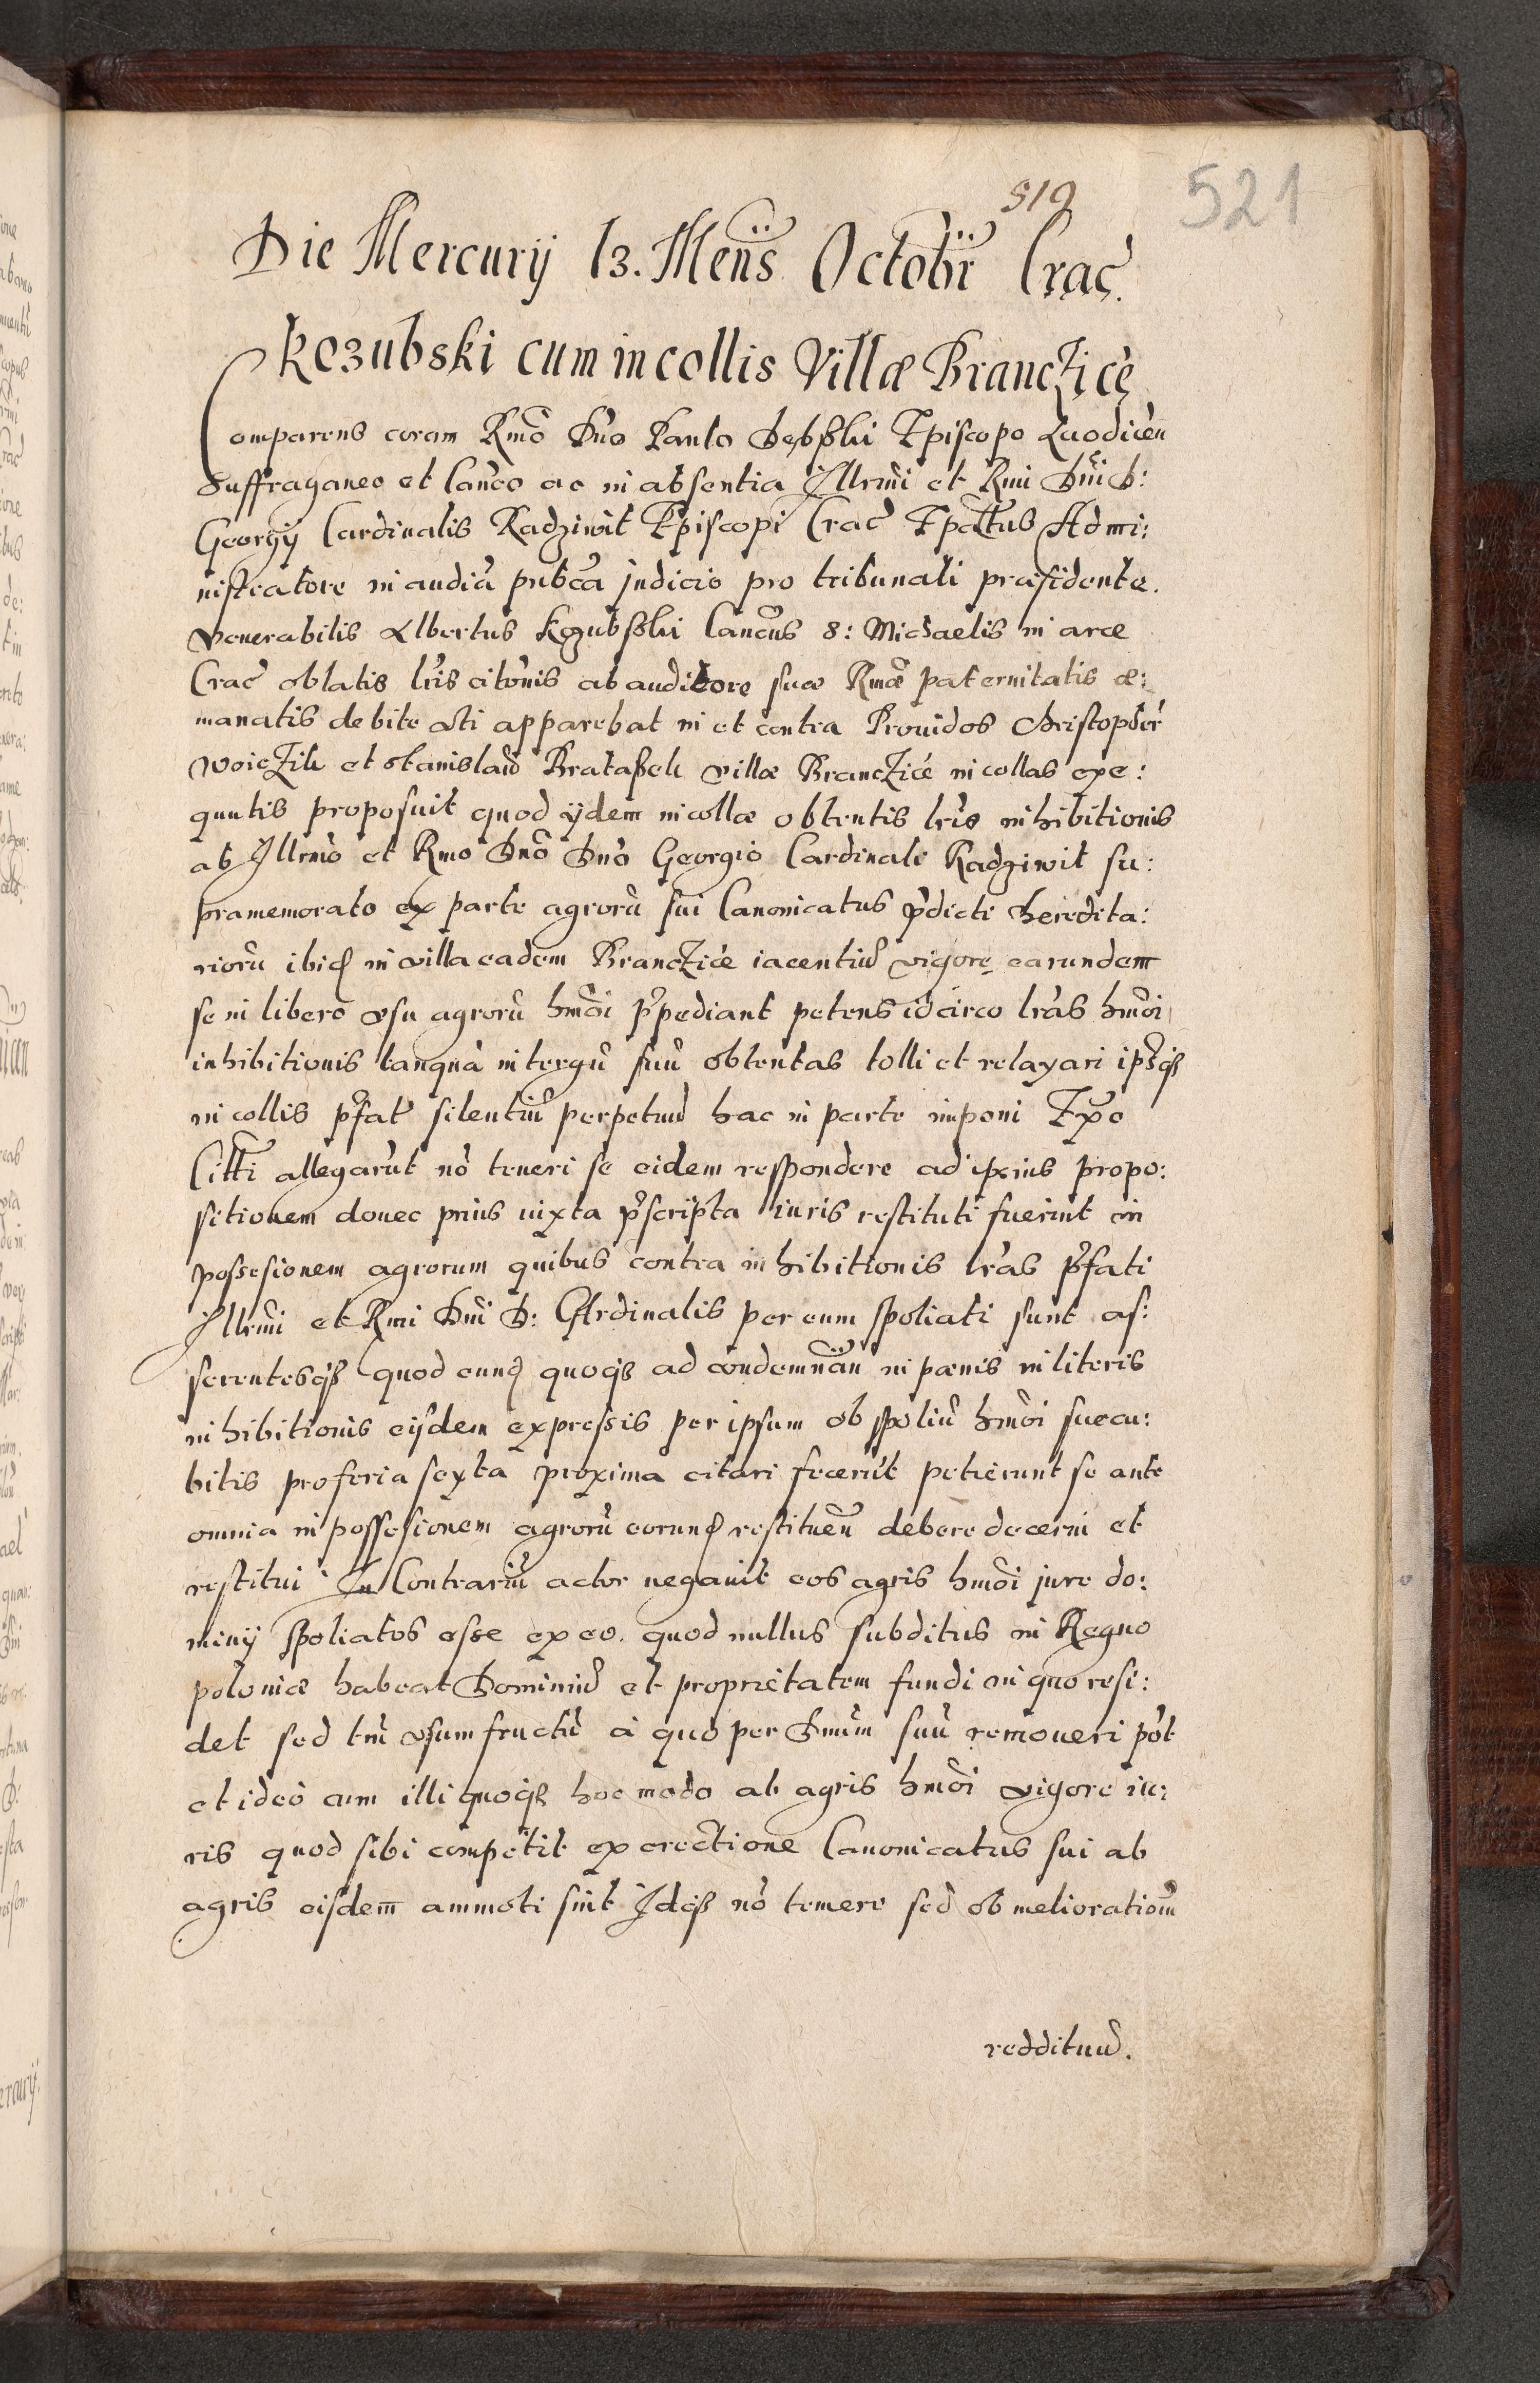 519
521
Die Mercurij 13. Mens Octobr Crac.
Kozubski cum incollis Villæ Branczice
Comparens coram Rmo Dno Paulo Dębski Episcopo Laodicen
Suffraganeo et Canco ac in absentia Illrmi et Rmi Dni D:
Georgij Cardinalis Radziwił Episcopi Crac Epattus Admi:
nistratore in audia publca judicio pro tribunali præsidente.
Venerabilis Albertus Kozubski Cancus S: Michaelis in arce
Crac oblatis lris citonis ab auditore suæ Rmæ paternitatis æ:
manatis debite uti apparebat in et contra Prouidos Christopher
Woiczik et Stanislaum Brataßek villæ Branczice incollas exe:
quutis proposuit quod ijdem incollæ obtentis lris inhibitionis
ab Illrmo et Rmo Dno Dno Georgio Cardinale Radziwił su:
pramemorato ex parte agroru sui Canonicatus pdicti heredita:
rioru ibid in villa eadem Branczice iacentiu vigore earundem
se in libero usu agroru hmoi ppediant petens idcirco lras hmoi
inhibitionis tanqua in tergu suu obtentas tolli et relaxari ipsisq
incollis pfat silentiu perpetuu hac in parte imponi Exo
Citti allegarut no teneri se eidem respondere ad ipsius propo:
sitionem donec prius iuxta pscripta iuris restituti fuerint in
possesionem agrorum quibus contra inhibitionis lras pfati
Illrmi et Rmi Dni D: CArdinalis per eum spoliati sunt as:
serentesq quod eund quoq ad condemnan in pænis in literis
inhibitionis eijsdem expressis per ipsum ob spoliu hmoi succu:
bitis pro feria sexta proxima citari fecerut petierunt se ante
omnia in possesionem agroru eorund restituen debere decerni et
restitui In Contrariu actor negauit eos agris hmoi jure do:
minij spoliatos esse ex eo. quod nullus subditus in Regno
poloniæ habeat Dominiu et proprietatem fundi in quo resi:
det sed tm usum fructu a quo per Dnum suu remoueri pot
et ideo cum illi quoq hoc modo ab agris hmoi vigore iu:
ris quod sibi competit ex erectione Canonicatus sui ab
agris eisdem ammoti sint Idq no temere sed ob melioratioem
reddituu.